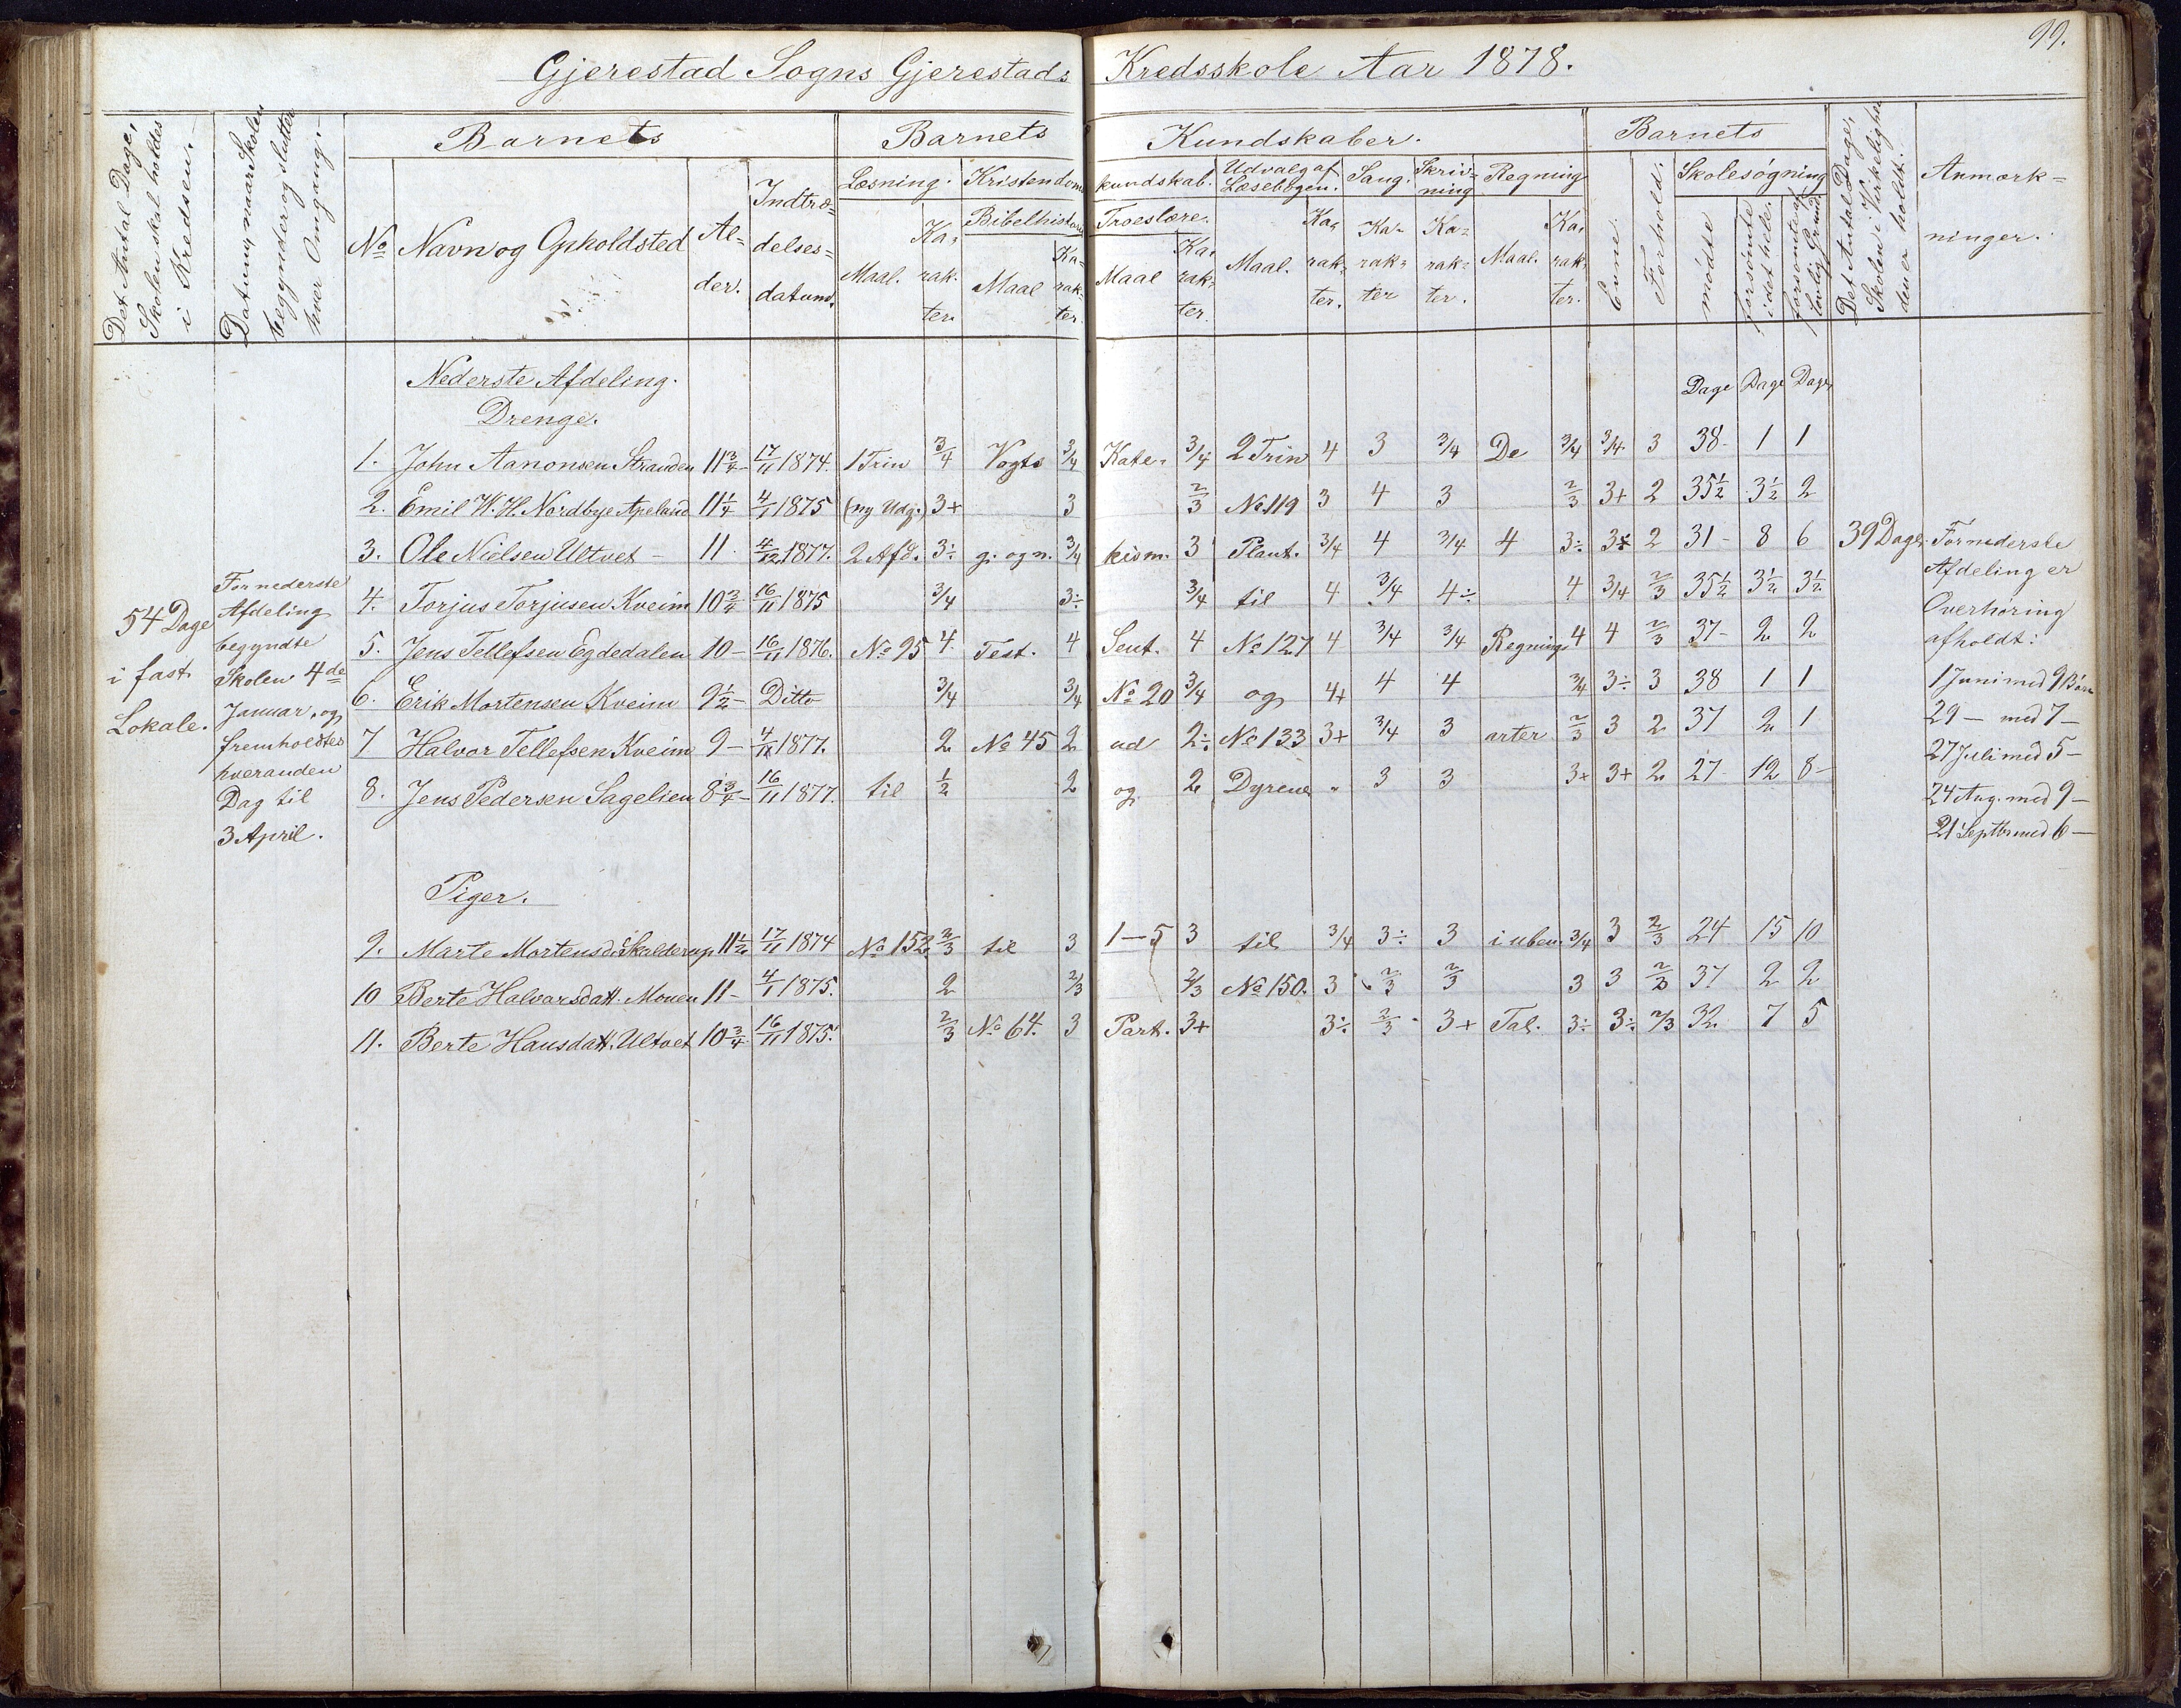 99.
Gjerestad Sogns Gjerestads Kredsskole Aar 1878.
Det Antal Dage, Skolen skal holdes i Kredsen.
Datum, naar Skolen begynder og slutter hver Omgang.
Barnets
Barnets Kundskaber.
Barnets
Det Antal Dage, Skolen i Virkeligheden er holdt.
Anmærkninger.
No
Navn og Opholdsted
Alder.
Indtrædelsesdatum.
Læsning.
Maal.
Karakter.
Kristendomskundskab.
Bibelhistorie
Maal
Karakter.
Troeslære.
Maal
Karakter.
Udvalg af Læsebogen.
Maal.
Karakter.
Sang.
Karakter
Skrivning
Karakter.
Regning
Maal.
Karakter.
Evne.
Forhold.
Skolesøgning
mødte
forsømte i det hele.
forsømte af lovlig Grund
Nederste Afdeling.
Dage Dage Dage
Drenge.
1. John Aanonsen Stranden 11 3/4 17/11 1874. 1 Trin 3/4 Vogts 3/4 Kate- 3/4 2 Trin 4 3 3/4 De 3/4 3/4 3 38 1 1
2. Emil W. H. Nordbye Apeland 11 1/4 4/1 1875 (ny Udg.) 3+ 3 2/3 No 119 3 4 3 2/3 3+ 2 35 1/2 3 1/2 2
3. Ole Nielsen Ultvet 11. 4/12 1877. 2 Afd. 3÷ g. og n. 3/4 kism. 3 Plant. 3/4 4 3/4 4 3÷ 3÷ 2 31 8 6 39 Dage.
4. Torjus Torjusen Kveim 10 3/4 16/11 1875 3/4 3÷ 3/4 til 4 3/4 4÷ 4 3/4 2/3 35 1/2 3 1/2 3 1/2
5. Jens Tellefsen Egdedalen 10 16/11 1876. No 95 4 Test. 4 Sent. 4 No 127 4 3/4 3/4 Regnings 4 4 2/3 37 2 2
6. Erik Mortensen Kveim 9 1/2 Ditto 3/4 3/4 No 20 3/4 og 4+ 4 4 3/4 3÷ 3 38 1 1
7 Halvor Tellefsen Kveim 9 1877. 2 No 45 2 ud 2÷ No 133 3+ 3/4 3 arter 2/3 3 2 37 2 1
8. Jens Pedersen Sagelien 8 3/4 16/11 1877. til 1/2 2 og 2 Dyrene " 3 3 3+ 3+ 2 27 12 8
Piger.
9. Marte Mortensd. Skalderup 11 1/2 17/11 1874 No 152. 2/3 til 3 1-5 3 til 3/4 3÷ 3 i uben. 3/4 3 2/3 24 15 10
10 Berte Halvorsdatt. Mouen 11 4/1 1875. 2 2/3 2/3 No 150. 3 2/3 2/3 3 3 2/3 37 2 2
11. Berte Hansdatt. Ultvet 10 3/4 16/11 1875. 2/3 No 64. 3 Part. 3+ 3÷ 2/3 3+ Tal. 3÷ 3÷ 2/3 32 7 5
54 Dage
i fast
Lokale.
For nederste
Afdeling
begyndte
Skolen 4de
Januar, og
fremholdtes
hveranden
Dag til
3 April.
For nederste
Afdeling er
Overhøring
afholdt:
1 Juni med 9 Børn
29 — med 7 —
27 Juli med 5 —
24 Aug. med 9 —
21 Septbr med 6 —